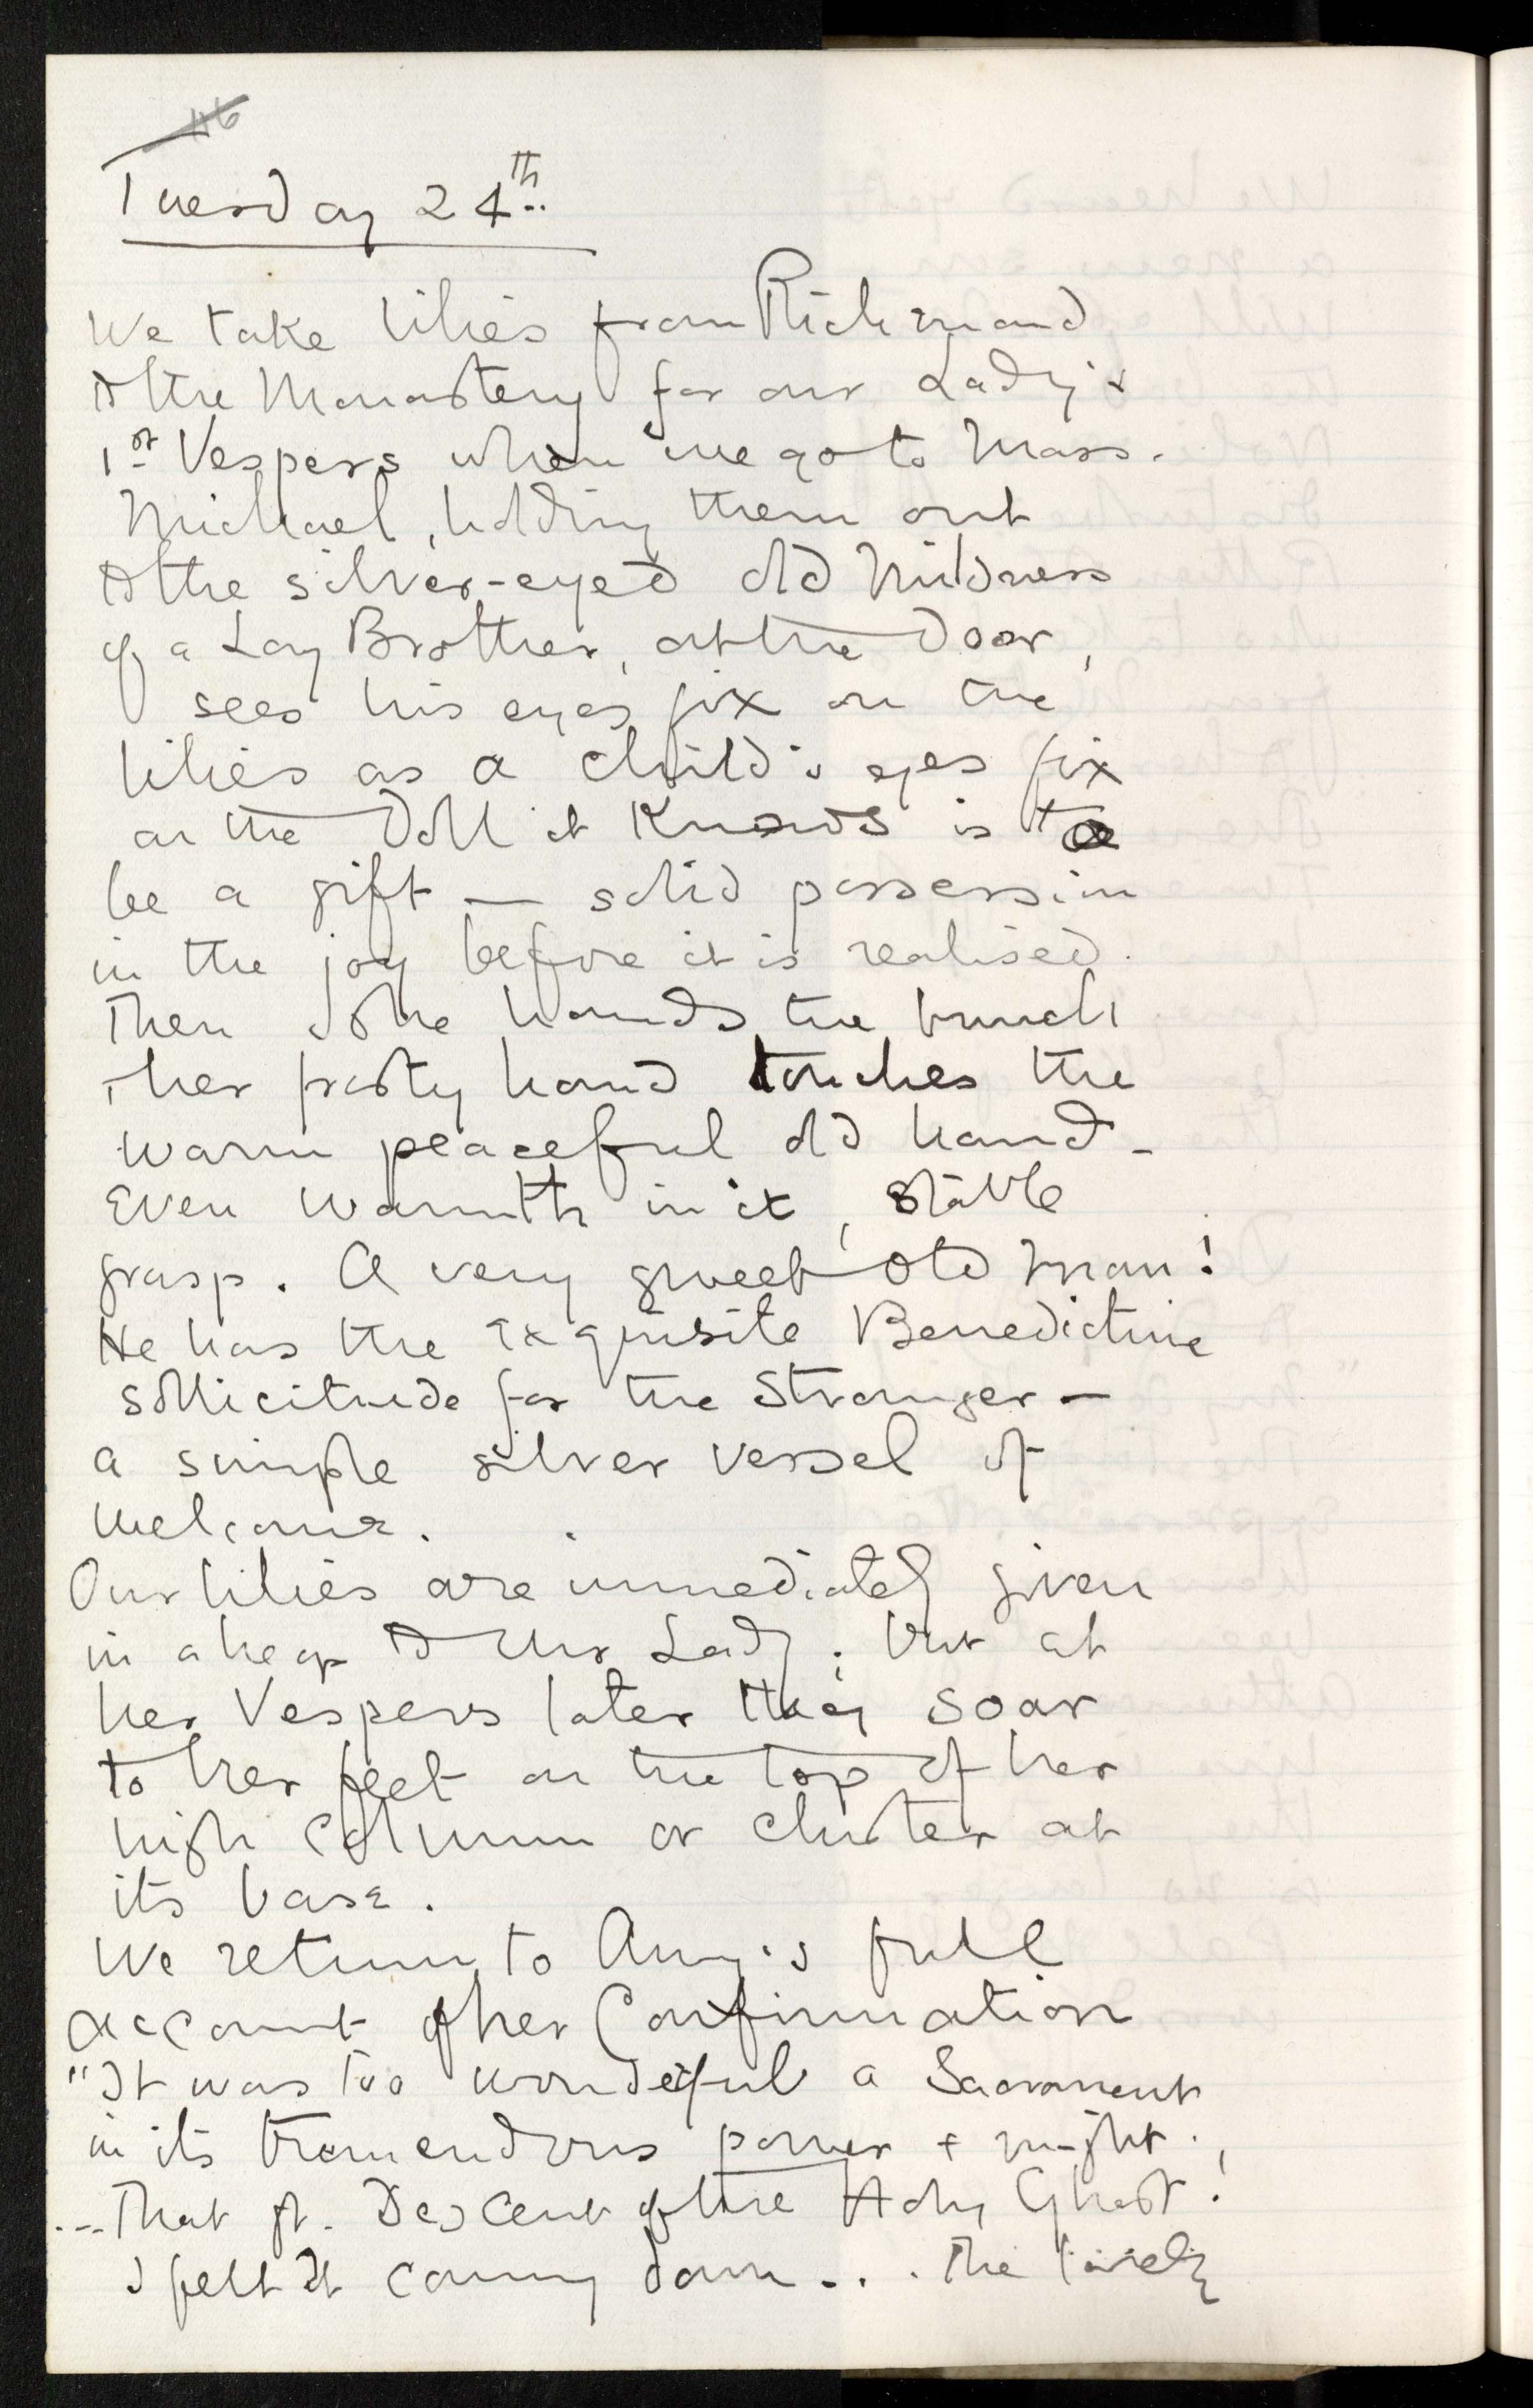 116
Tuesday 24th
We take lilies from Richmond
to the Monastery for our Lady's
1st Vespers when we go to Mass.
Michael, holding them out
to the silver-eyed old mildness
of a Lay Brother, at the door,
sees his eyes fix on the
lilies as a child's eyes fix
on the doll it knows is to
be a gift — solid possession
in the joy before it is realised.
Then she hands the bunch
& her frosty hand touches the
warm peaceful old hand –
Even warmth in it, stable
grasp. A very sweet old man!
He has the exquisite Benedictine
sollicitude for the Stranger –
a simple silver vessel of
welcome.
Our lilies are immediately given
in a heap to Our Lady; but at
her Vespers later they soar
to her feet on the top of her
high column or cluster at
its base.
We return to Amy's full
account of her Confirmation
"It was too wonderful a Sacrament
in its tremendous power & might.
... That gt. Descent of the Holy Ghost!
I felt It coming down . . . The lovely